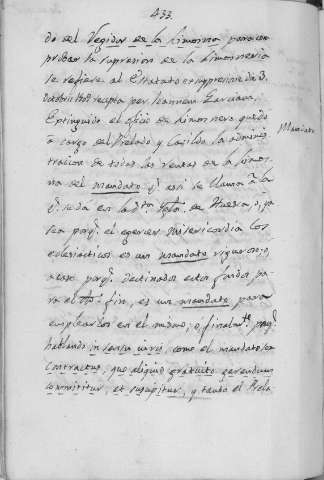 433.
do del Regidor de la Limosna para com
probar la supresion de la Limosneria
se refiere al Estatuto
Octobris recepta per Joannem Garciam.
Extinguido el oficio de Limosnero quedó
à cargo del Prelado y Cavildo la adminis
tracion de todas las rentas de la Limos
na del mandato q.e asi se llama à la
q.e se dà en la S.ta Igla. de Huesca, ò, ya
sea porq.e el egercer misericordia los
eclesiasticos es un mandato riguroso; ò,
acaso porq.e destinados estos fondos pa
ra el fin, es un mandato para
emplearlos en el mismo; o finalm.te porq.e
hablando in sensu juris, como el mandato sea
Contractus, quo aliquid gratuito gerendum
committitur, et suscipitur, y tanto el Prela
Mandato